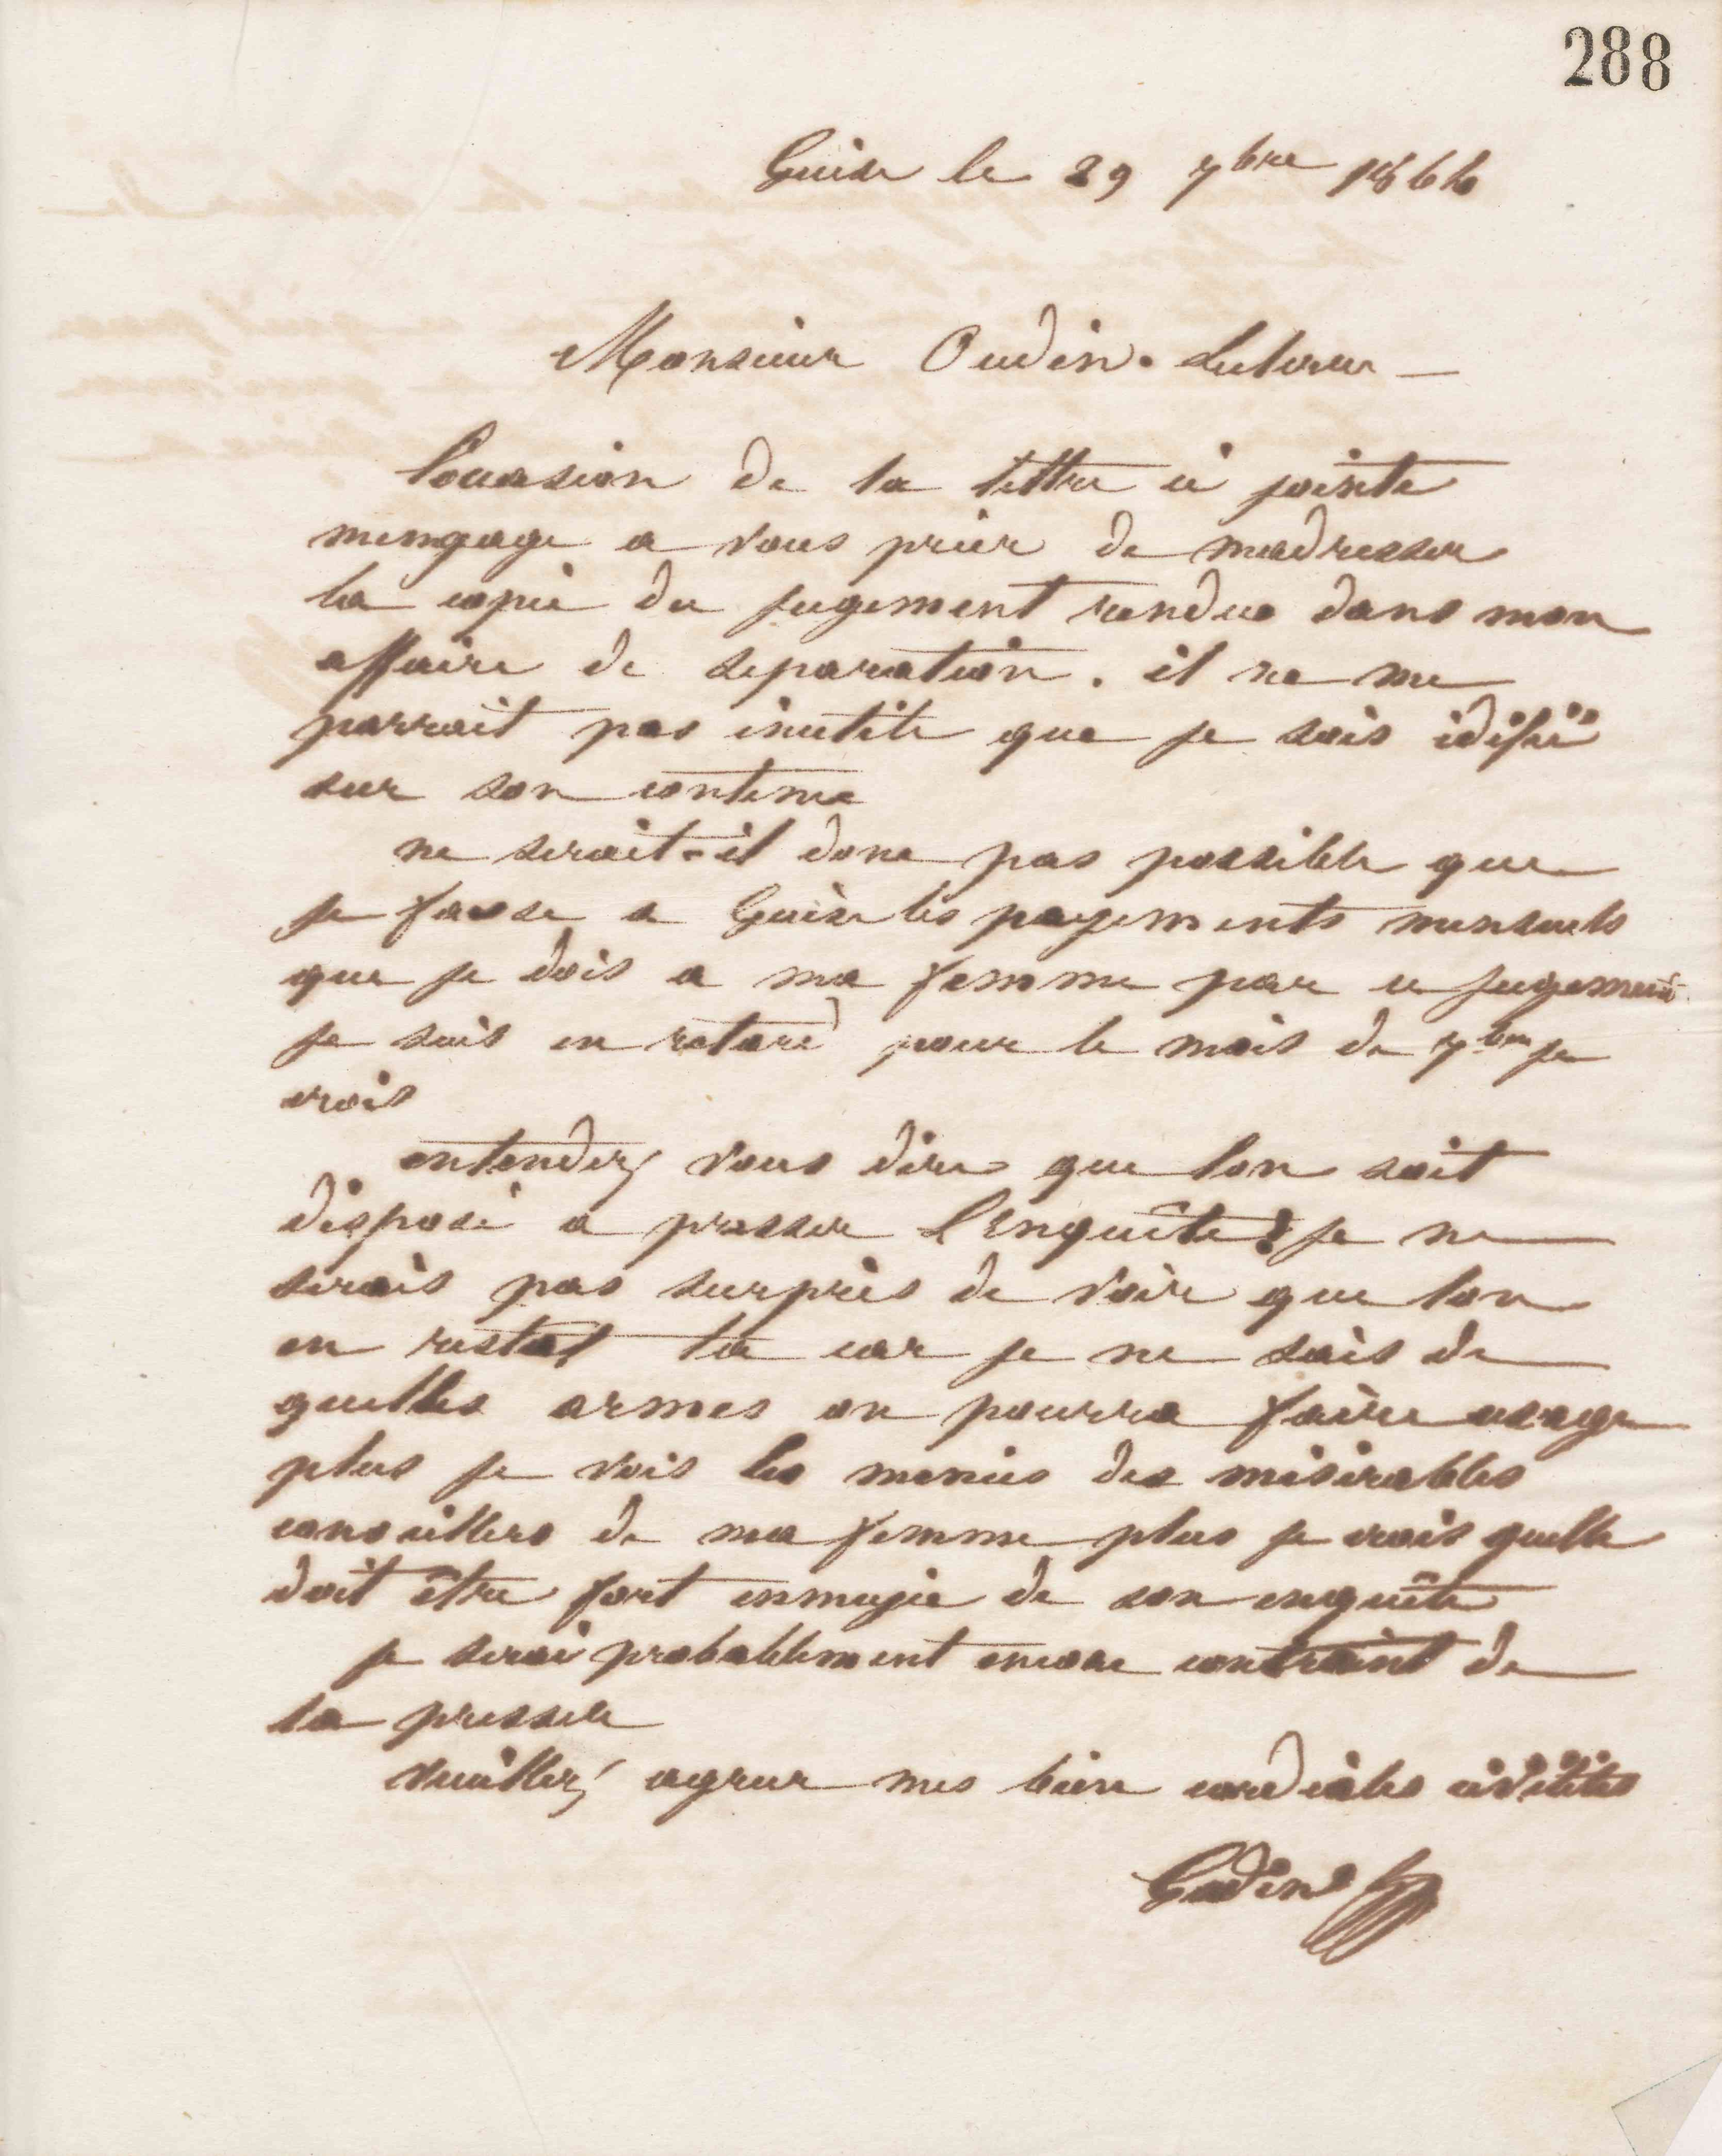 288
Guise le 29 7bre 1866
Monsieur Oudin-Leclerc
l'occasion de la lettre ci jointe
mengage a vous prier de madresser
la copie du jugement rendue dans mon
affaire de separation. il ne me
parrait pas inutile que je sois idifié
sur son contenu
ne serait-il donc pas possible que
je fasse a Guise les payements mensuels
que je dois a ma femme par ce jugement
je suis en retard pour le mois de 7bre je
crois
entendez vous dire que lon soit
disposé a presser l'enquête? je ne
serais pas surpris de voir que lon
en restat la car je ne sais de
quelles armes on pourra faire usage
plus je vois les menées des misérables
conseillers de ma femme plus je crois quelle
doit être fort ennuyée de son enquête
je serai probablement encore contraint de
la presser
veuillez agreer mes bien cordiales civilités
Godin